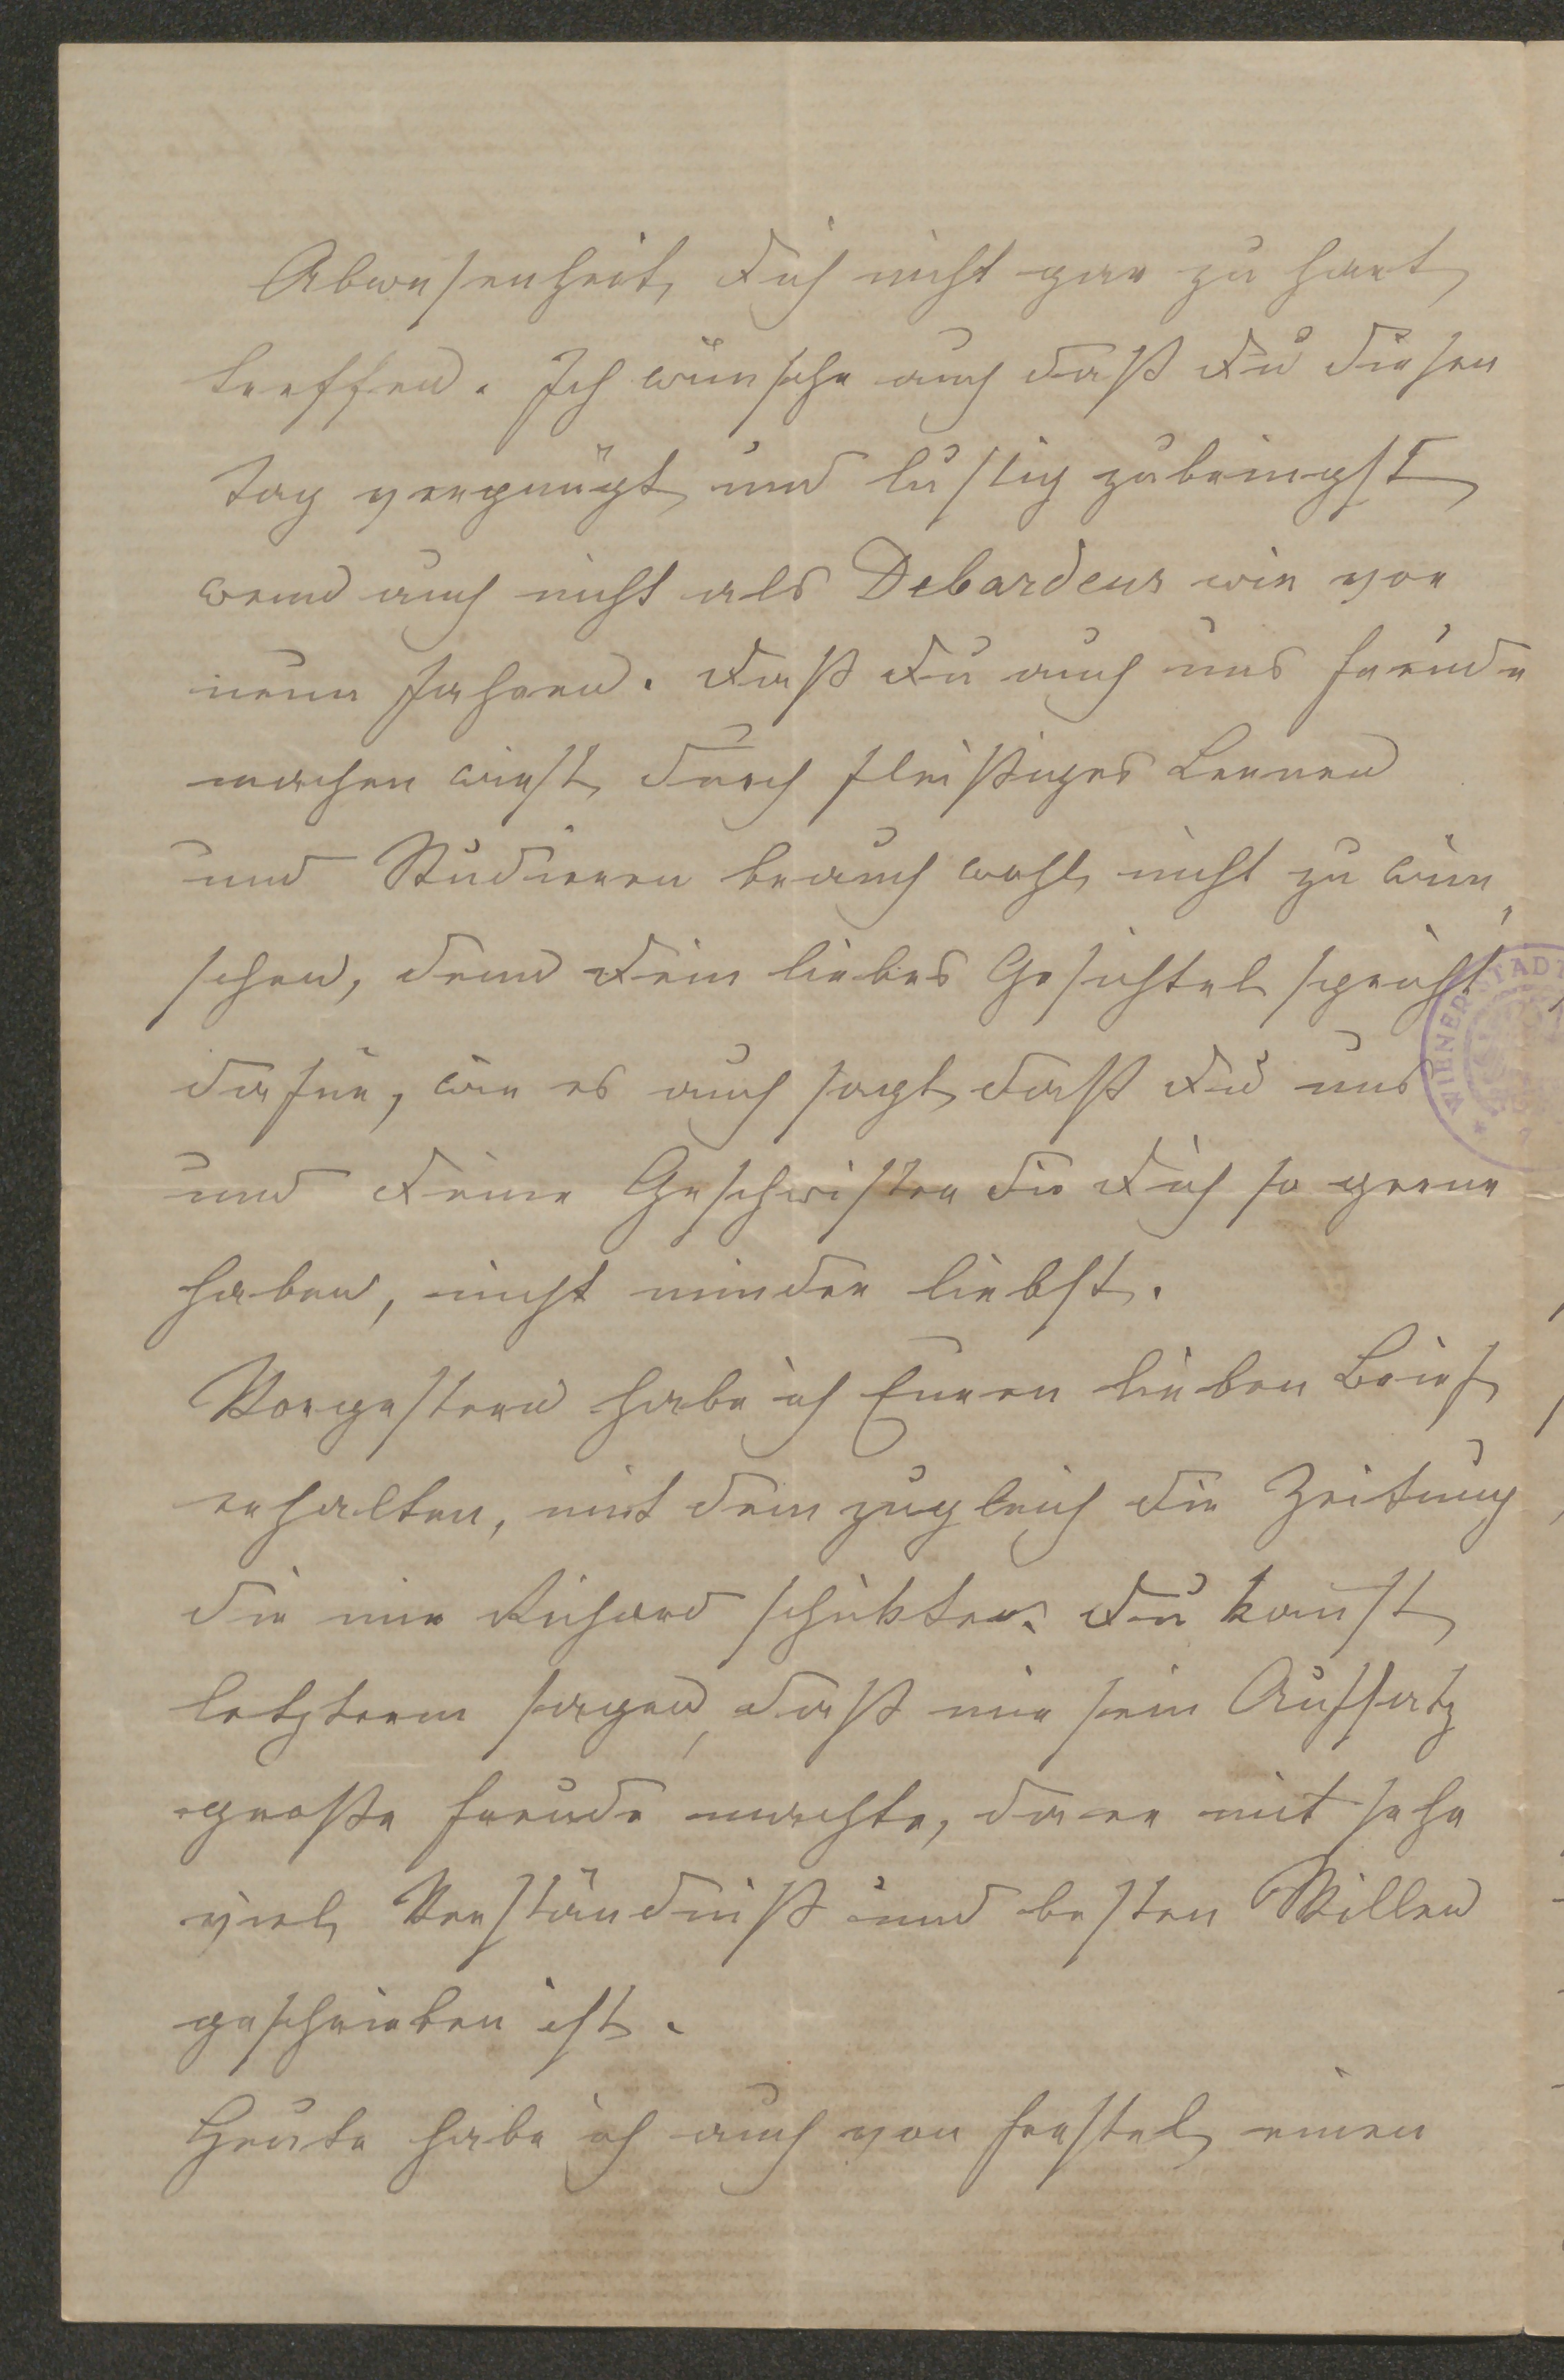 Abwesenheit, Dich nicht gar zu hart
treffen. Ich wünsche auch daß Du diesen
Tag vergnügt und lustig zubringst
wenn auch nicht als Debardeur wie vor
neun Jahren. Daß Du auch uns Freude
machen wirst durch fleißiges Lernen
und Studieren brauch wohl nicht zu wün„
schen, denn Dein liebes Gesichtel spricht
dafür, wie es auch sagt daß Du uns
und Deine Geschwister die Dich so gerne
haben, nicht minder liebst.
Vorgestern habe ich Euren lieben Brief
erhalten, mit dem zugleich die Zeitung
die mir Richard schikte. Du kanst
letzterem sagen, daß mir sein Aufsatz
große Freude machte, da er mit sehr
viel Verständniß und besten Willen
geschrieben ist.
Heute habe ich auch von Ferstel einen
WIENER STADT